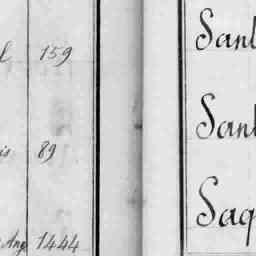 l 159
is 89
Ang 1444
Sanl
Sanl
Saq